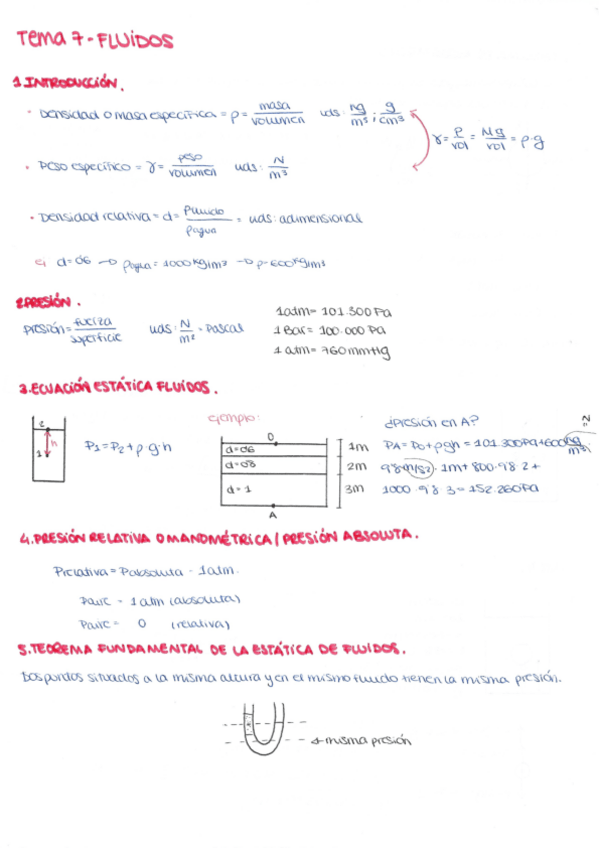 Tema 7 - FLUIDOS
1. INTRODUCCIÓN.
• Densidad o masa específica = ρ = masa / volumen uds: kg/m³ ; g/cm³
γ = P/vol = M·g/vol = ρ·g
• Peso específico = γ = peso / volumen uds: N/m³
• Densidad relativa = d = ρfluido / ρagua = uds: adimensional
ej d=06 → ρagua = 1000 kg/m³ → ρ=600 kg/m³
2. PRESIÓN.
1 atm = 101.300 Pa
Presión = fuerza / superficie uds: N/m² = Pascal
1 Bar = 100.000 Pa
1 atm = 760 mmHg
3. ECUACIÓN ESTÁTICA FLUIDOS.
2
h
1
P1 = P2 + ρ·g·h
ejemplo:
0
d=06
d=08
d=1
A
1m
2m
3m
¿Presión en A?
PA = P0 + ρgh = 101.300 Pa + 600 kg/m³ ·
9'8 m/s² · 1m + 800 · 9'8 · 2 +
1000 · 9'8 · 3 = 152.260 Pa
4. PRESIÓN RELATIVA O MANOMÉTRICA / PRESIÓN ABSOLUTA.
Prelativa = Pabsoluta - 1 atm.
Paire = 1 atm (absoluta)
Paire = 0 (relativa)
5. TEOREMA FUNDAMENTAL DE LA ESTÁTICA DE FLUIDOS.
Dos puntos situados a la misma altura y en el mismo fluido tienen la misma presión.
→ misma presión